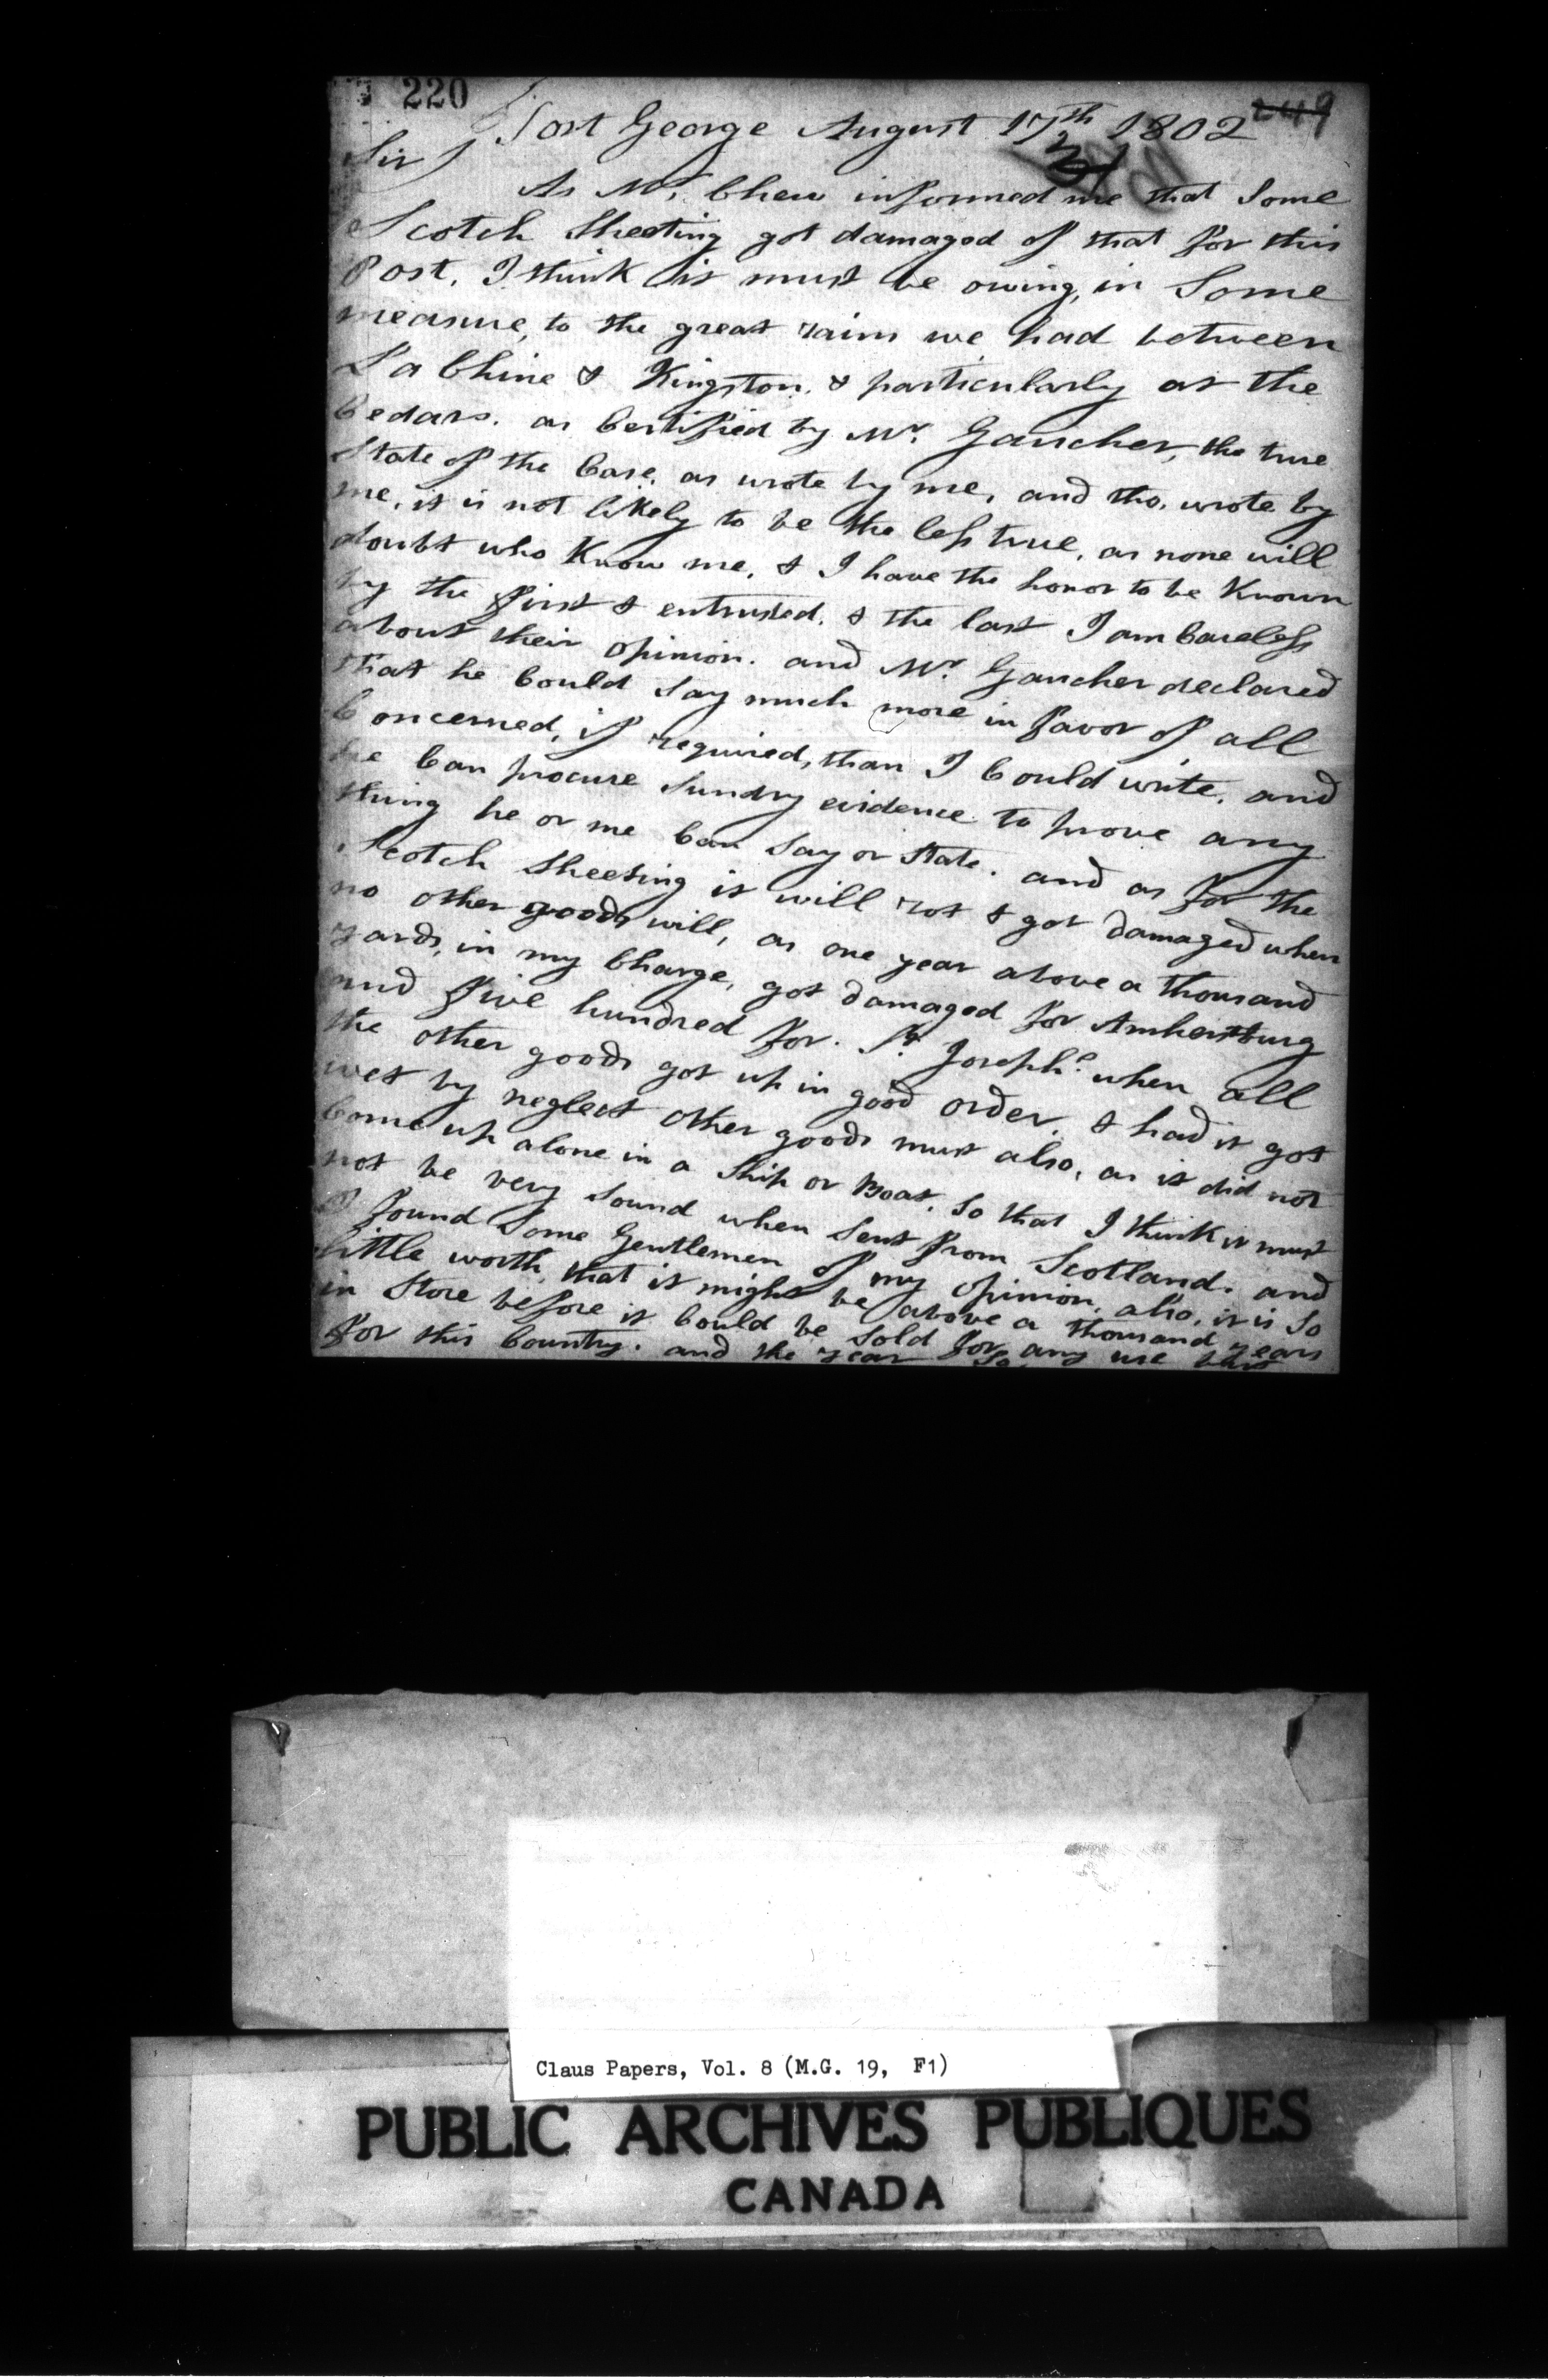 220
249
Fort George August 17th 1802
Sir)
As Mr. Chew informed me that Some
Scotch Sheeting got damaged of that for this
Post. I think it must be owing, in Some
measure, to the great rains we had between
La Chine & Kingston. & particularly at the
Cedars. as Certified by Mr. Gaucher, the true
State of the Case. as wrote by me, and tho. wrote by
me, it is not likely to be the less true, as none will
doubt who Know me, & I have the honor to be Known
by the first & entrusted. & the last I am Careless
about their opinion. and Mr. Gaucher declared
that he Could Say much more in favor of all
Concerned, if required, than I Could write. and
he Can procure Sundry evidence to prove any
thing he or me Can Say or State. and as for the
Scotch Sheeting it will rot & got damaged when
no other goods will, as one year above a thousand
yards, in my Charge, got damaged for Amherstburg
and five hundred for St. Josephs. when all
the other goods got up in good order. & had it got
wet by neglect other goods must also, as it did not
Come up alone in a Ship or Boat. So that I think it must
not be very Sound when Sent from Scotland. and
I found Some Gentlemen of my opinion, also, it is So
little worth, that it might be above a thousand years
in Store before it Could be Sold for any use
for this Country. and the year
Claus Papers, Vol. 8 (M.G. 19, F1)
PUBLIC ARCHIVES PUBLIQUES
CANADA